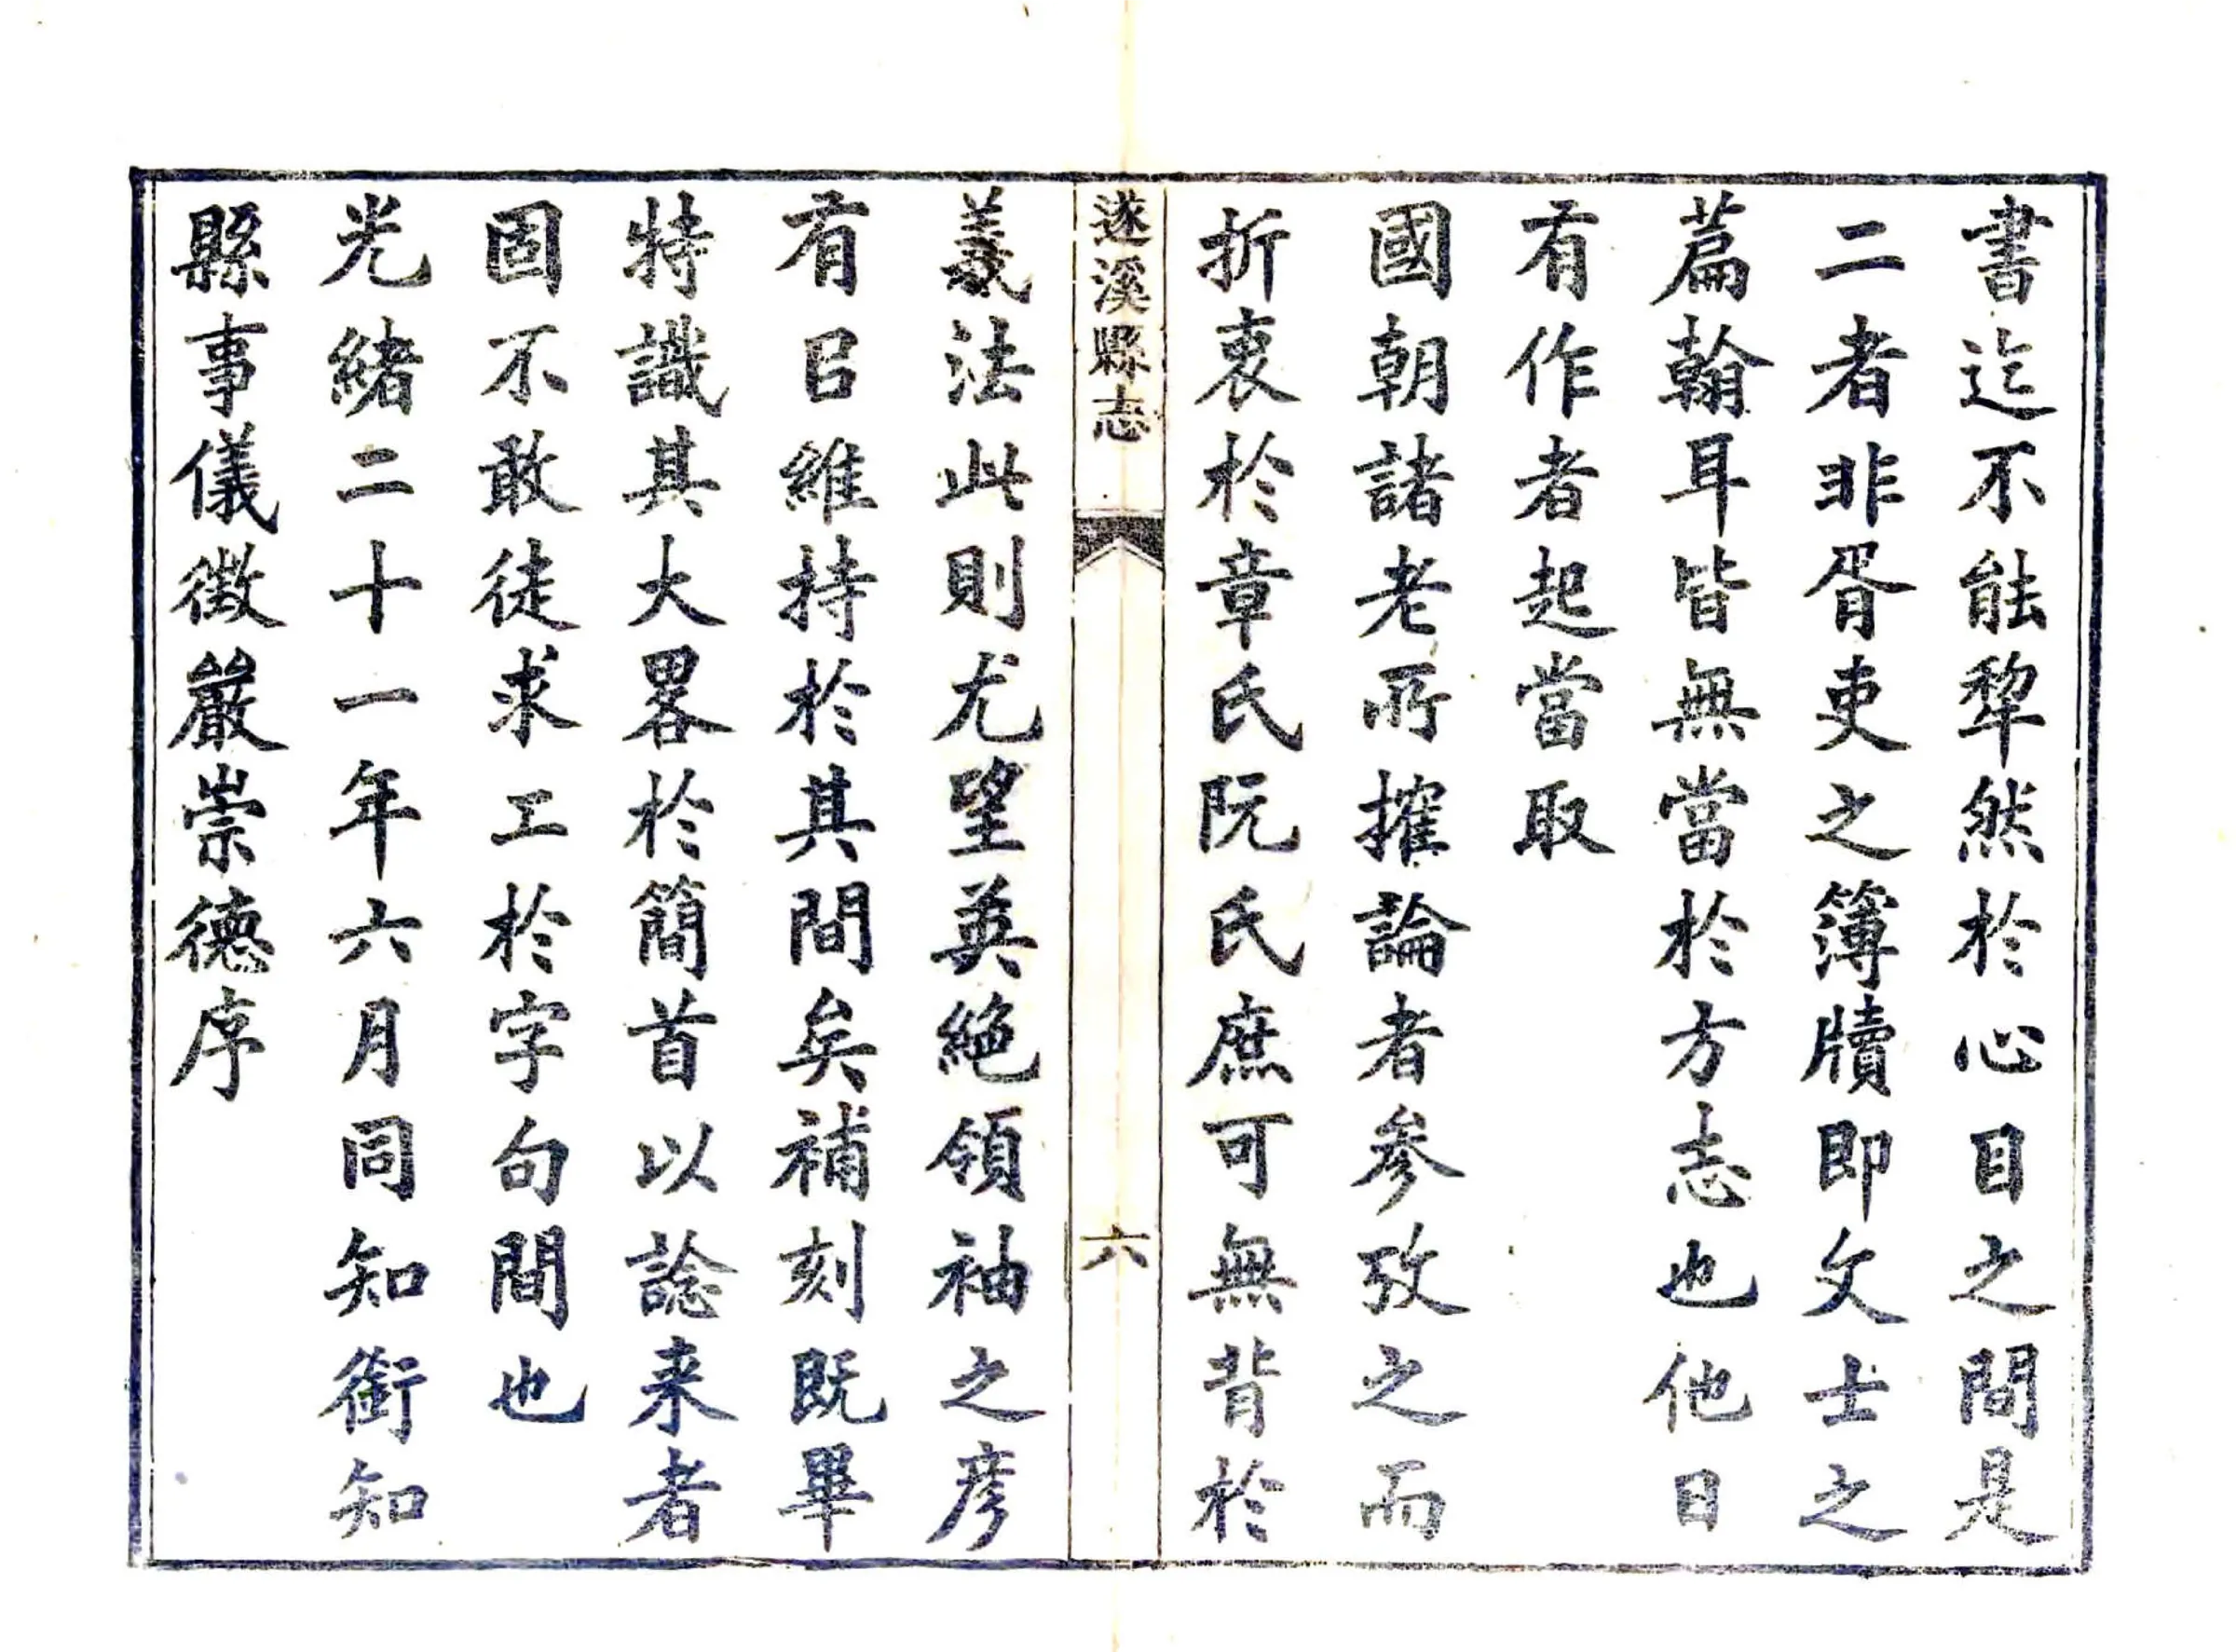 書迄不能犂然於心目之間是
二者非胥吏之簿牘即文士之
篇翰耳皆無當於方志也他日
有作者起當取
國朝諸老所搉論者參攷之而
折衷於章氏阮氏庶可無背於
遂溪縣志
六
義法此則尤望英絕領袖之彥
有㠯維持於其間矣補刻既畢
特識其大畧於簡首以諗来者
固不敢徒求工於字句間也
光緒二十一年六月同知銜知
縣事儀徵嚴崇德序